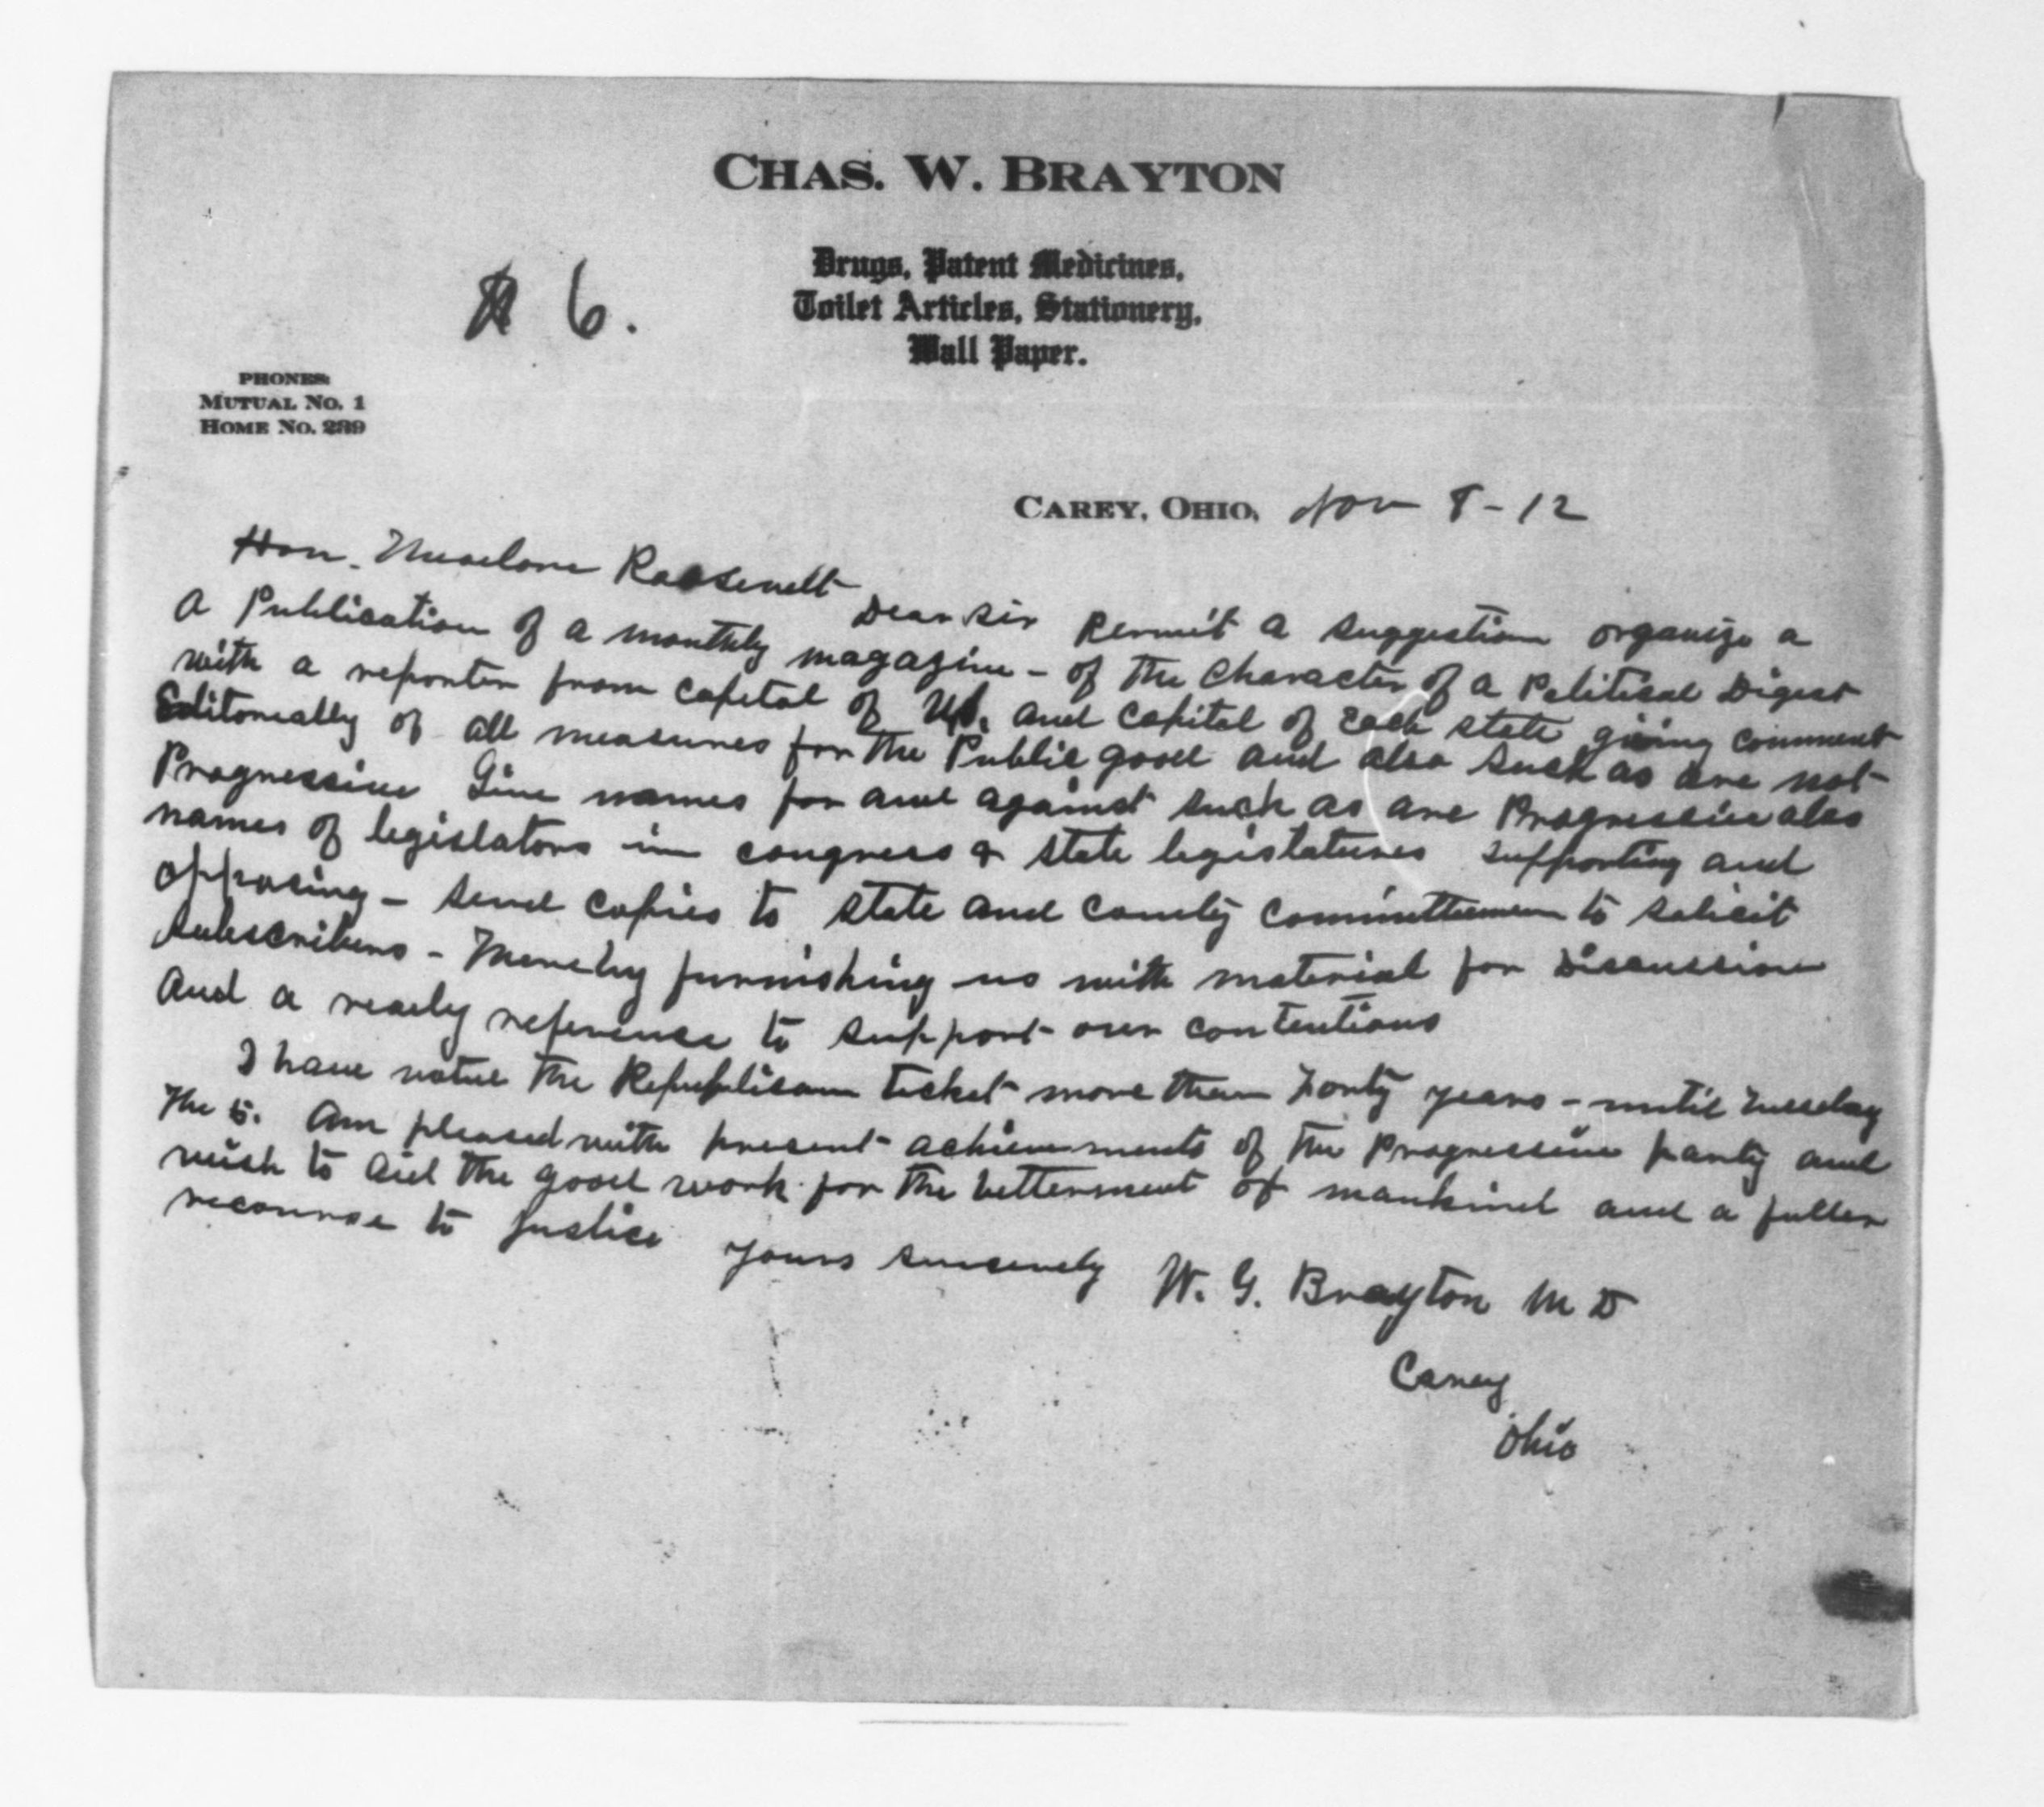 CHAS. W. BRAYTON
Drugs, Patent Medicines,
Toilet Articles, Stationery,
Wall Paper.
R 6.
PHONES:
MUTUAL NO. 1
HOME NO. 289
CAREY, OHIO, Nov 8-12
Hon. Theodore Roosevelt
Dear Sir Permit a suggestion organize a
a Publication of a monthly magazine - of the character of a Political Digest
with a reporter from capital of U.S. and capital of each state giving comment
Editorially of all measures for the Public good and also such as are not
Progressive Give names for and against such as are Progressive also
names of legislators in congress & state legislatures supporting and
opposing - send copies to state and county committeemen to solicit
subscribers - Thereby furnishing us with material for Discussion
and a ready reference to support our contentions
I have voted the Republican ticket more than Forty years - until Tuesday
the 5. Am pleased with present achievements of the Progressive party and
wish to aid the good work for the betterment of mankind and a fuller
recourse to Justice yours sincerely W. G. Brayton M D
Carey
Ohio